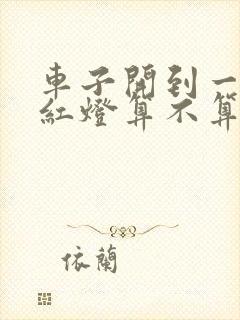 車子開到一
紅燈算不算
依蘭